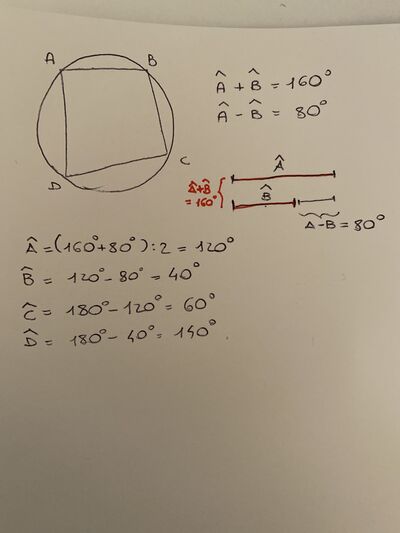 A B
C
D
Â + B̂ = 160°
Â - B̂ = 80°
Â
Â+B̂
= 160°
B̂
A-B = 80°
Â = (160°+80°):2 = 120°
B̂ = 120° - 80° = 40°
Ĉ = 180° - 120° = 60°
D̂ = 180° - 40° = 140°